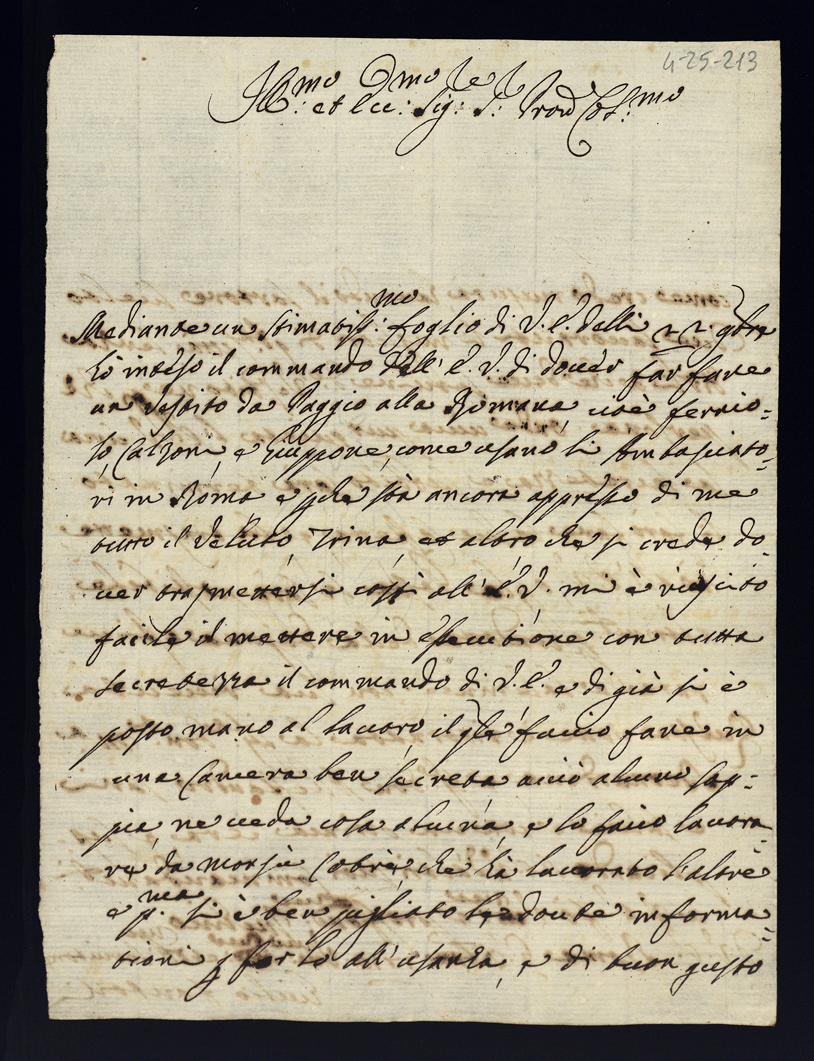 4-25-213
Ill:mo et Ecc:mo Sig: S: Prõn Col:mo
Mediante un stimatiss:mo foglio di V.E. delli 22 9bre
hò inteso il commando dell' E.V. di dover far fare
un vestito da Paggio alla Romana, cioè ferrio=
lo Calzoni, e Giuppone, come usano li Ambasciato=
ri in Roma e p̃che stà ancora appresso di me
tutto il Veluto, Trina, et altro che si crede do=
ver trasmettersi costì all' E.V. mi è riuscito
facile il mettere in essecutione con tutta
secretezza il commando di V.E. e di già si è
posto mano al lavoro, il q̃le faccio fare in
una Camera ben secreta acciò alcuno sap=
pia, ne veda cosa alcuna, e lo faccio lavora=
re da monsù Cobrè, che hà lavorato l'altre
e p.ma si è ben pigliato le dovute informa=
tioni p farlo all' usanza, e di buon gusto